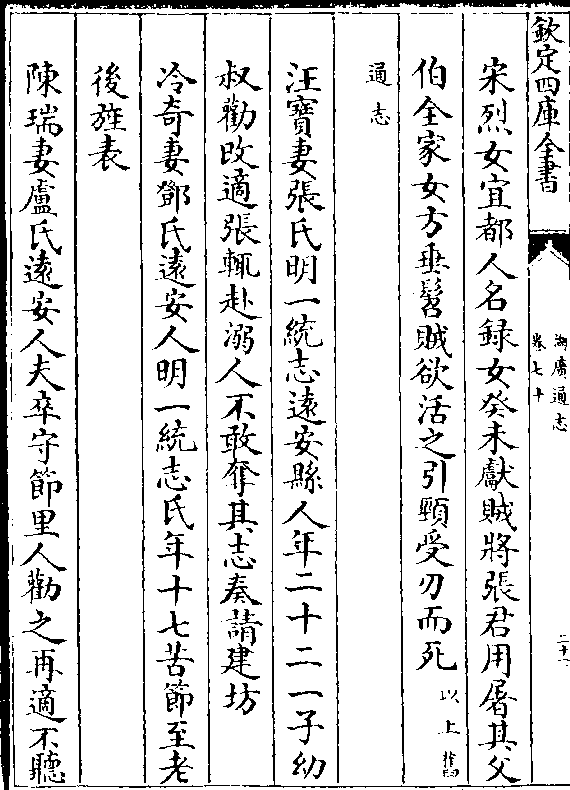 欽定四庫全書
湖廣通志
卷七十
二十一
宋烈女宜都人名録女癸未獻賊將張君用屠其父
伯全家女方垂髫賊欲活之引頸受刃而死以上舊
通志
汪寳妻張氏明一統志遠安縣人年二十二一子幼
叔勸改適張輒赴溺人不敢奪其志奏請建坊
冷竒妻鄧氏遠安人明一統志氏年十七苦節至老
後旌表
陳瑞妻盧氏遠安人夫卒守節里人勸之再適不聽